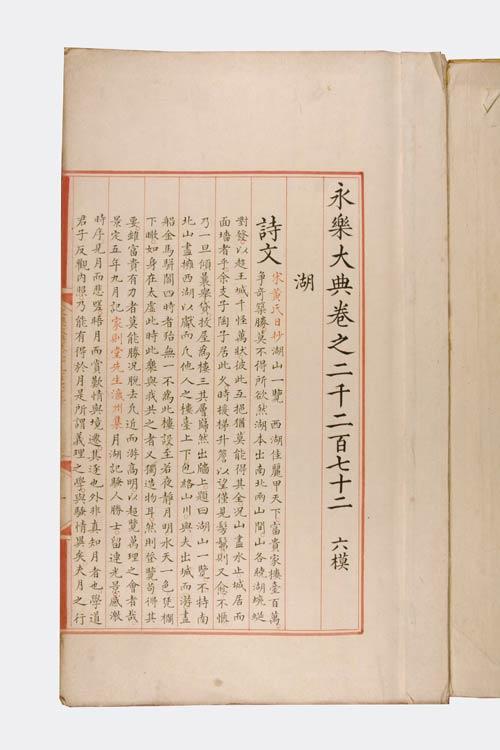 永樂大典卷之二千二百七十二 六模
湖
詩文 宋黃氏日抄湖山一覽 西湖佳麗甲天下富貴家樓臺百萬
爭奇築勝莫不得所欲然湖本出南北兩山間山各繞湖蜿蜒
對發以趍王城千怪萬狀彼此互挹猶莫能得其全况山盡水止城居而
面墻者乎余支子陶子居此久時接梯升簷以望僅見髣髴則又愈不愜
乃一旦傾囊舉貸揆屋爲樓三其層巋然出牆上題曰湖山一覽不特南
北山盡擁西湖以獻而凡他人之樓臺上下包絡山川與夫出城而游畫
船金馬駢闐四時者殆無一不爲此樓設至若夜靜月明水天一色凭欄
下瞰如身在太虛此時此樂與我共之者又獨造物耳然則登覽苟得其
要雖富貴有力者莫能勝况脫去凡近而游高明以超覽萬理之會者哉
景定五年九月記家則堂先生瀛州集月湖記騷人勝士留連光景感激
時序見月而悲晤月而賞歡情與境遷其逐也外非真知月者也學道
君子反觀內照乃能有得於月是所謂義理之學與騷情異矣夫月之行